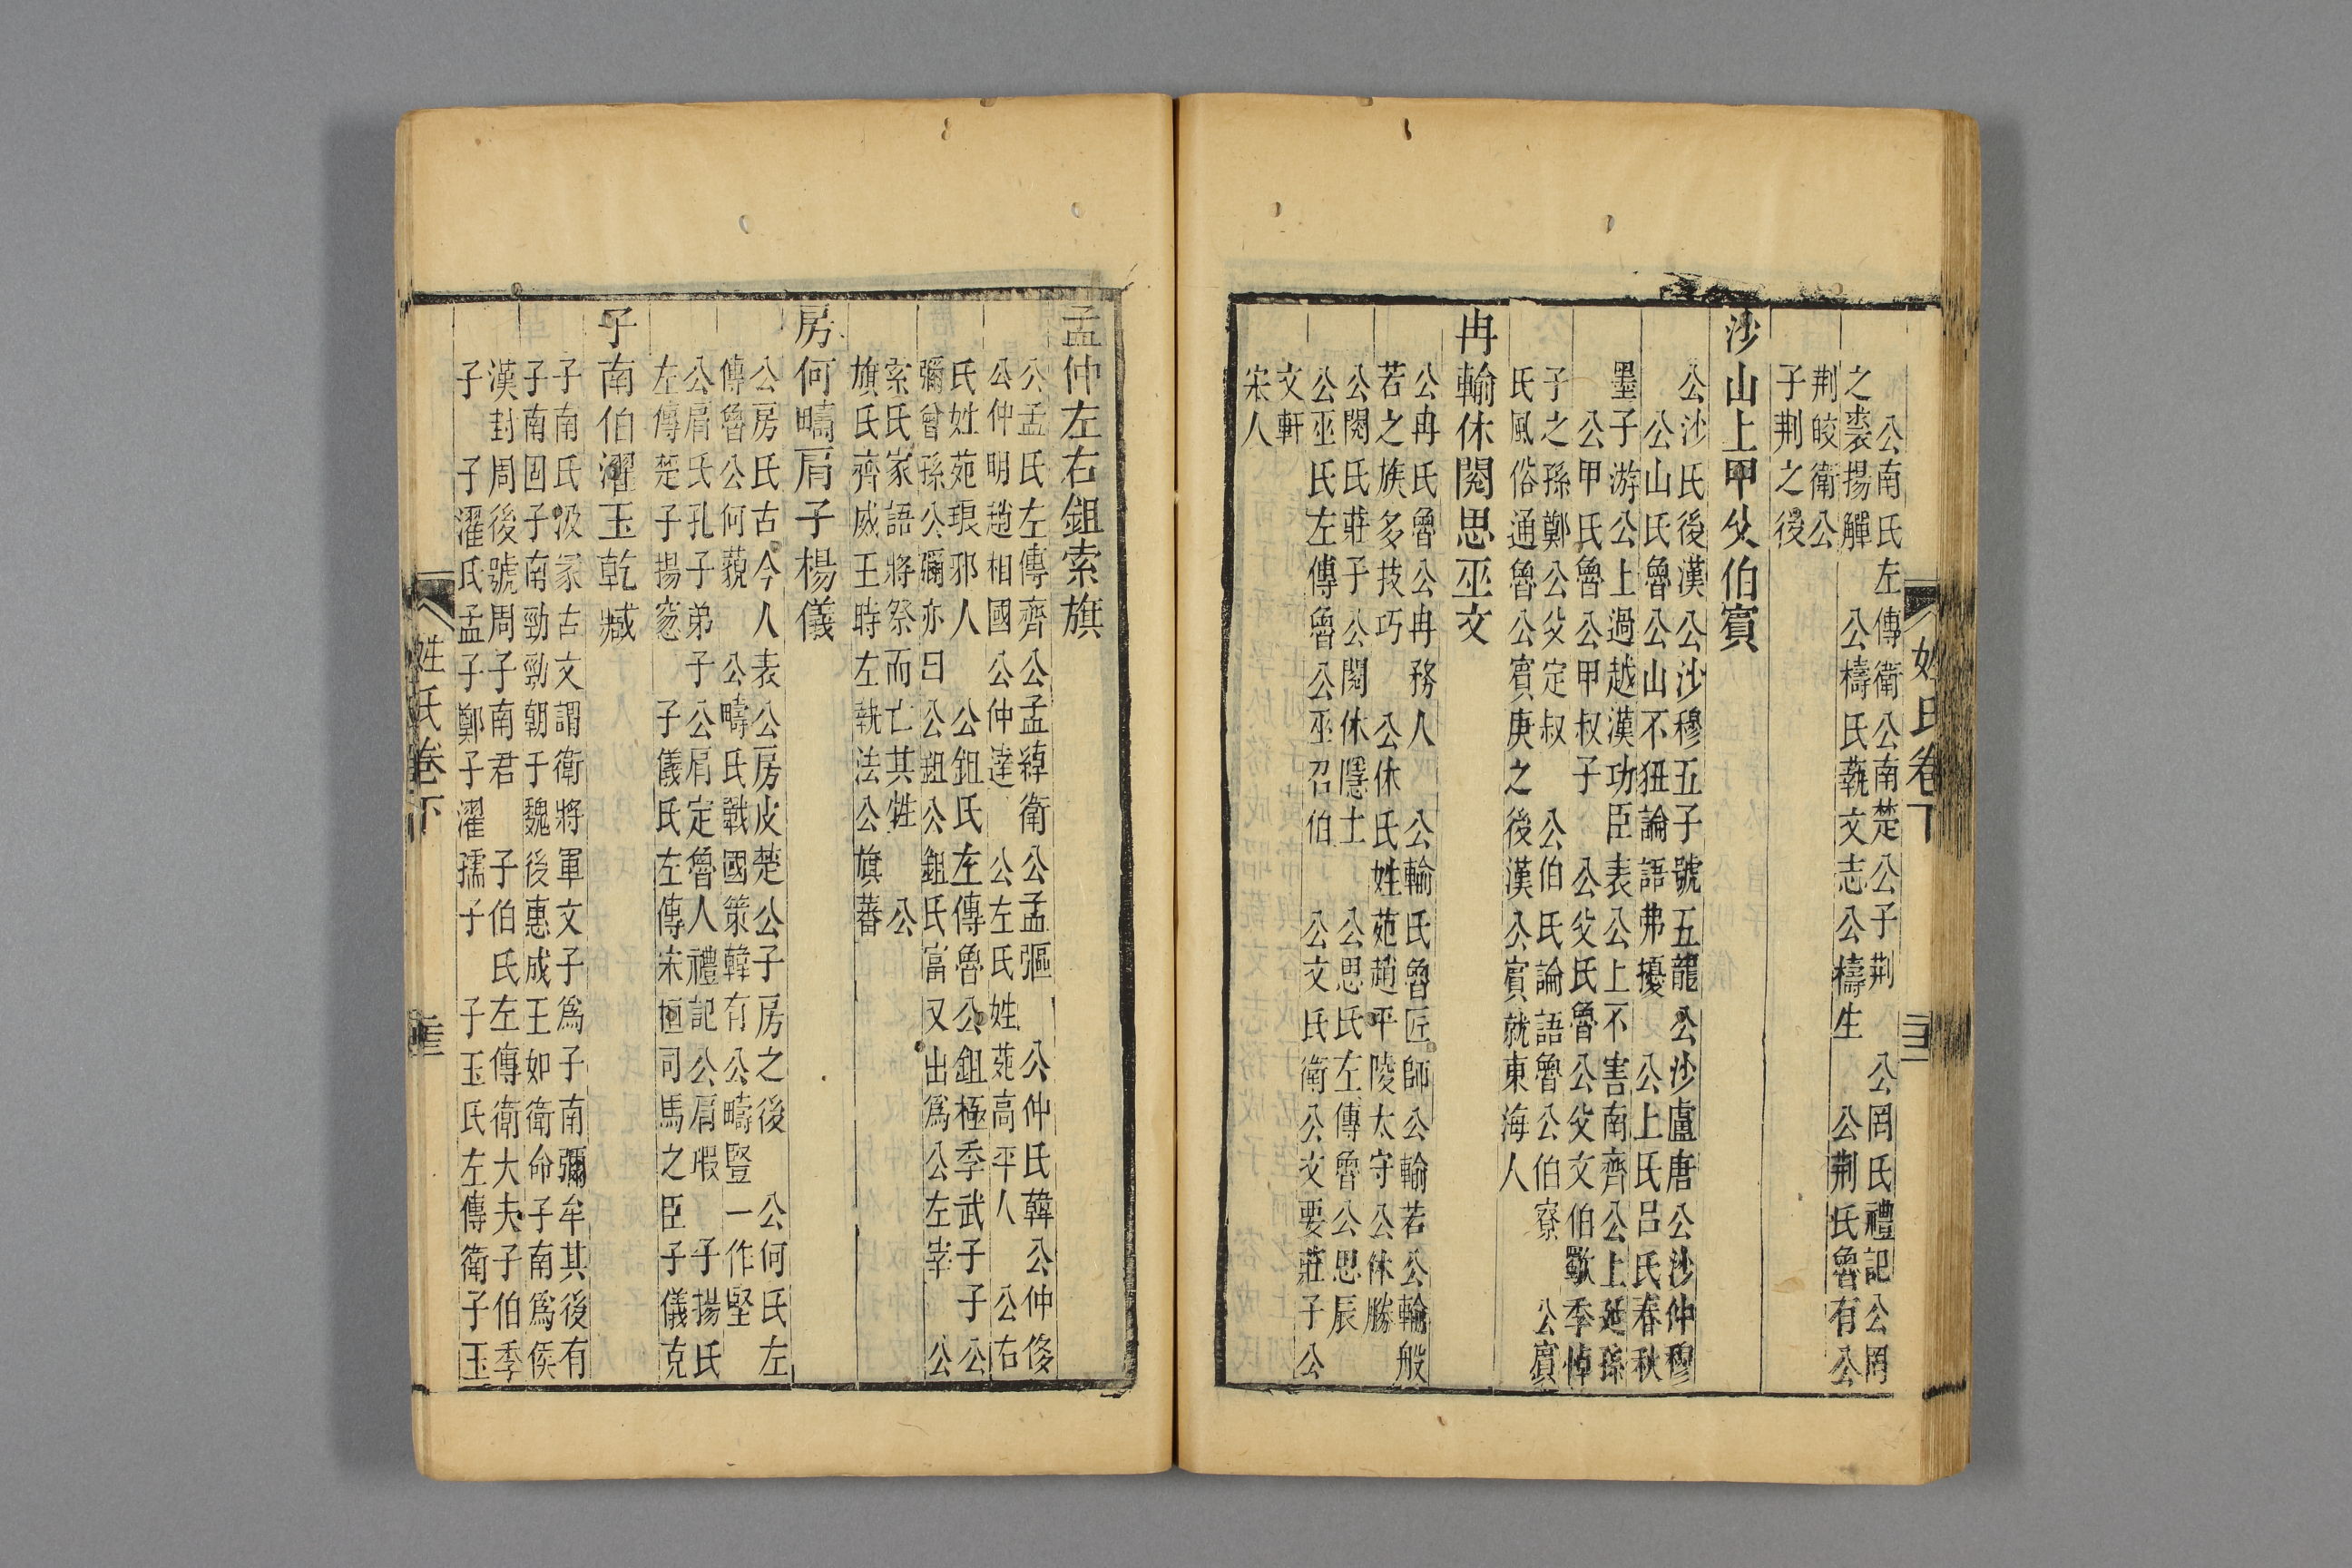 公南氏左傳衛公南楚公子荆　公罔氏禮記公罔
之裘揚觶　公檮氏藝文志公檮生　公荆氏魯有公
荆皎衛公
子荆之後
沙山上甲父伯賓
公沙氏後漢公沙穆五子號五龍公沙盧唐公沙仲穆
公山氏魯公山不狃論語弗擾　公上氏呂氏春秋
墨子游公上過越漢功臣表公上不害南齊公上延孫
公甲氏魯公甲叔子　公父氏魯公父文伯歜季悼
子之孫鄭公父定叔　公伯氏論語魯公伯寮　公賓
氏風俗通魯公賓庚之後漢公賓就東海人
冉輸休閱思巫文
公冉氏魯公冉務人　公輸氏魯匠師公輸若公輸般
若之族多技巧　公休氏姓苑趙平陵太守公休勝
公閱氏莊子公閱休隱士　公思氏左傳魯公思辰
公巫氏左傳魯公巫召伯　公文氏衛公文要莊子公
文軒
宋人
姓氏卷下
孟仲左右鉏索旗
公孟氏左傳齊公孟綽衛公孟彄　公仲氏韓公仲侈
公仲明趙相國公仲達　公左氏姓苑高平人　公右
氏姓苑琅邪人　公鉏氏左傳魯公鉏極季武子子公
彌曾孫公彌亦曰公鉏公鉏氏富又出爲公左宰　公
索氏家語將祭而亡其牲　公
旗氏齊威王時左執法公旗蕃
房何疇肩子楊儀
公房氏古今人表公房皮楚公子房之後　公何氏左
傳魯公何藐　公疇氏戰國策韓有公疇豎一作堅
公肩氏孔子弟子公肩定魯人禮記公肩瑕　子揚氏
左傳楚子揚窓　子儀氏左傳宋桓司馬之臣子儀克
子南伯濯玉乾臧
子南氏汲冢古文謂衛將軍文子爲子南彌牟其後有
子南固子南勁勁朝于魏後惠成王如衛命子南爲侯
漢封周後號周子南君　子伯氏左傳衛大夫子伯季
子　子濯氏孟子鄭子濯孺子　子玉氏左傳衛子玉
姓氏卷下